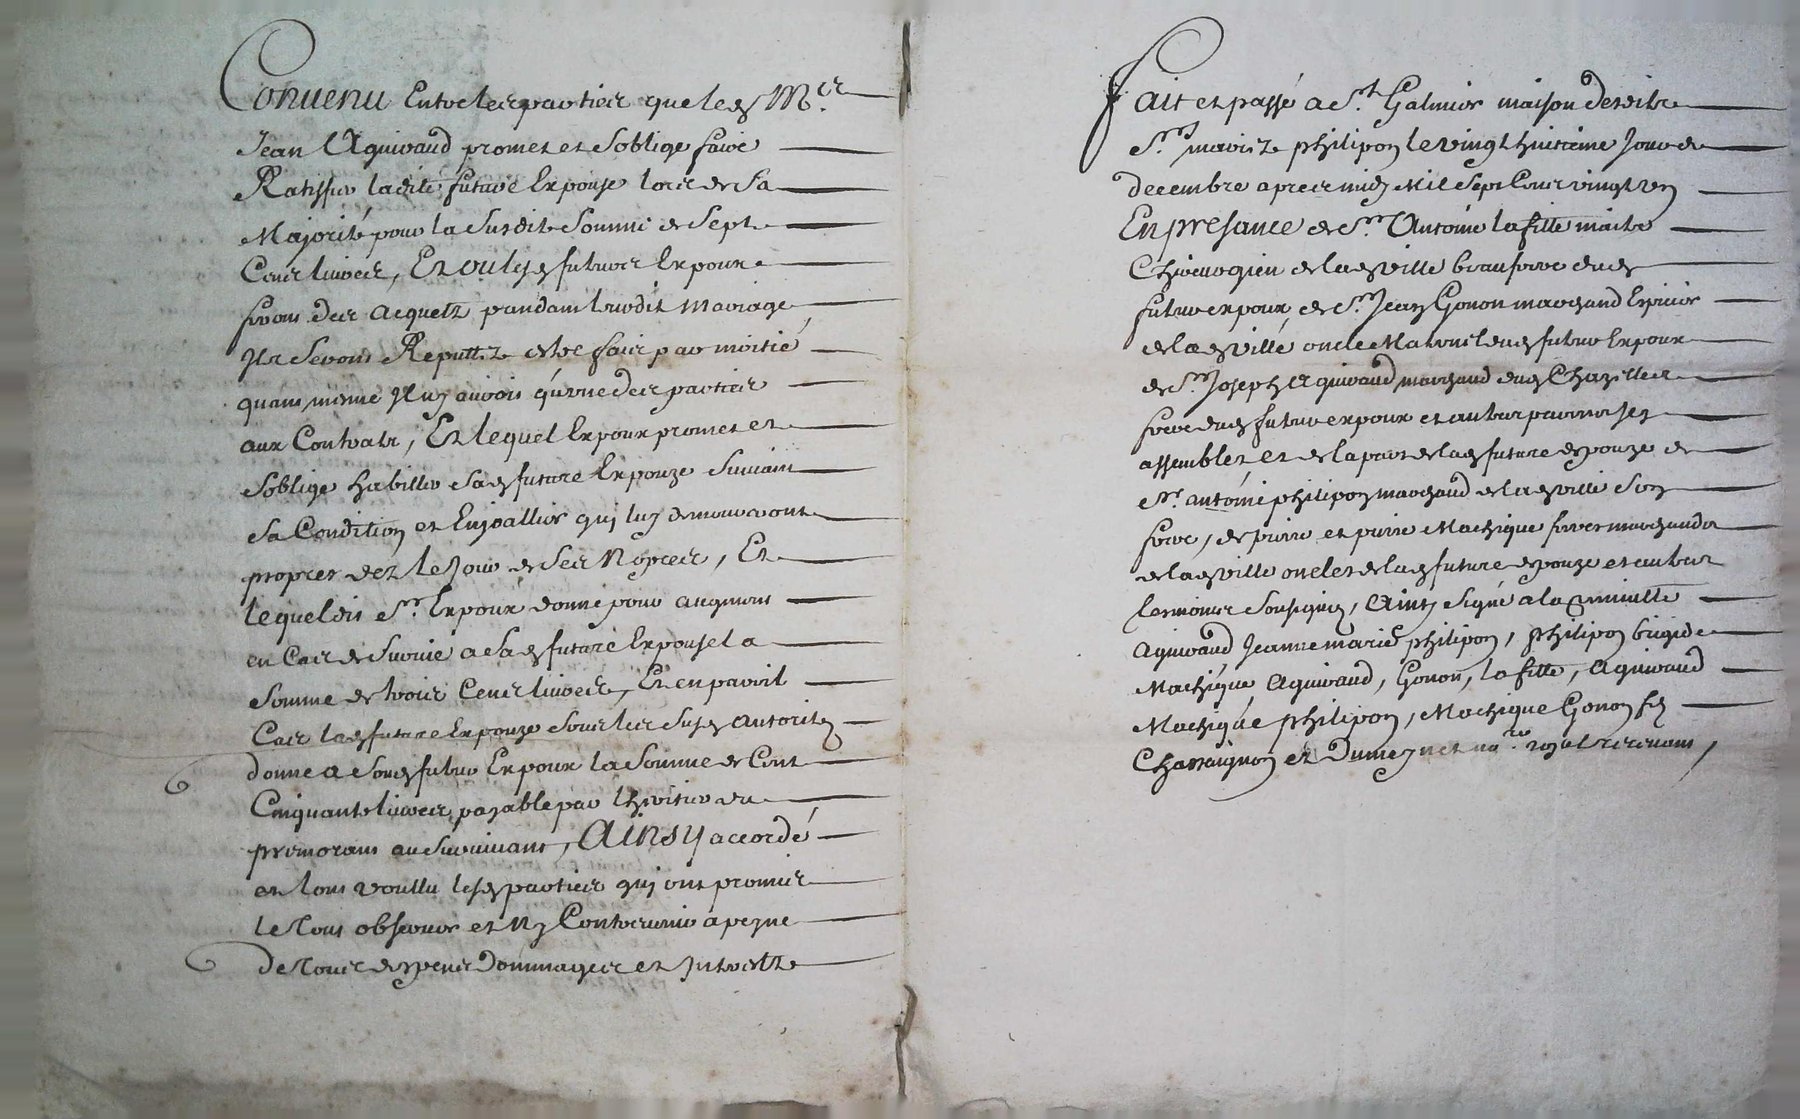 Convenu Entre les parties que led Mre
Jean Aguiraud promet et soblige faire
Ratiffier ladite future Expouse lors de sa
Majorité pour la susdite somme de sept
Cens livres, Et ou lesd futurs Expoux
feront des acquetz pandant leurdit mariage
Ils seront Reputtez estre fais par moitié
quant mesme Il ny auroit qu'une des parties
aux Contratz, Et lequel Expoux promet et
soblige habiller sad future Expouze suivant
sa Condition et Enjoaller quy luy demeureront
propres dez le Jour de ses Nopces, Et
lequeldit Sr Expoux donne pour augment
en Cas de survie a sad future Expouse la
somme de trois Cens livres, Et en pareil
Cas lad future Expouze sous les susd autoritez
donne a sond futur Expoux la somme de Cent
Cinquante livres payable par lheritier du
premorant au survivant, Ainsy accordé
et tout voullu lesd parties quy ont promis
le tout observer et Ny Contrevenir a peyne
de tous despens dommages et Interestz
Fait et passé a St Galmier maison de
Sr philipon le vingt huitieme Jour de
decembre apres midy Mil sept Cens vingt un
En presance de Sr Antoine lafille maitre
Chirurgien de lad ville beaufrere dud
futur expoux, de Sr Jean Gonon marchand Expicier
de lad ville oncle Maternel dud futur Expoux
de Sr Joseph Aguiraud marchand dud Chazelles
frere dud futur expoux et autres parens
assemblez et de la part de lad future epouze de
Sr antoine philipon marchand de lad ville son
frere, de pierre et pierre Machique freres marchands
de lad ville oncles de lad future epouze et autres
tesmoins sousignez, Ainsy signé a la minutte
Aguiraud Jeanne marie philipon, philipon brigide
Machique Aguiraud, Gonon, lafille, Aguiraud
Machique philipon, Machique Gonon fils
Chassaignon et Dumeynet nore royal recevant,